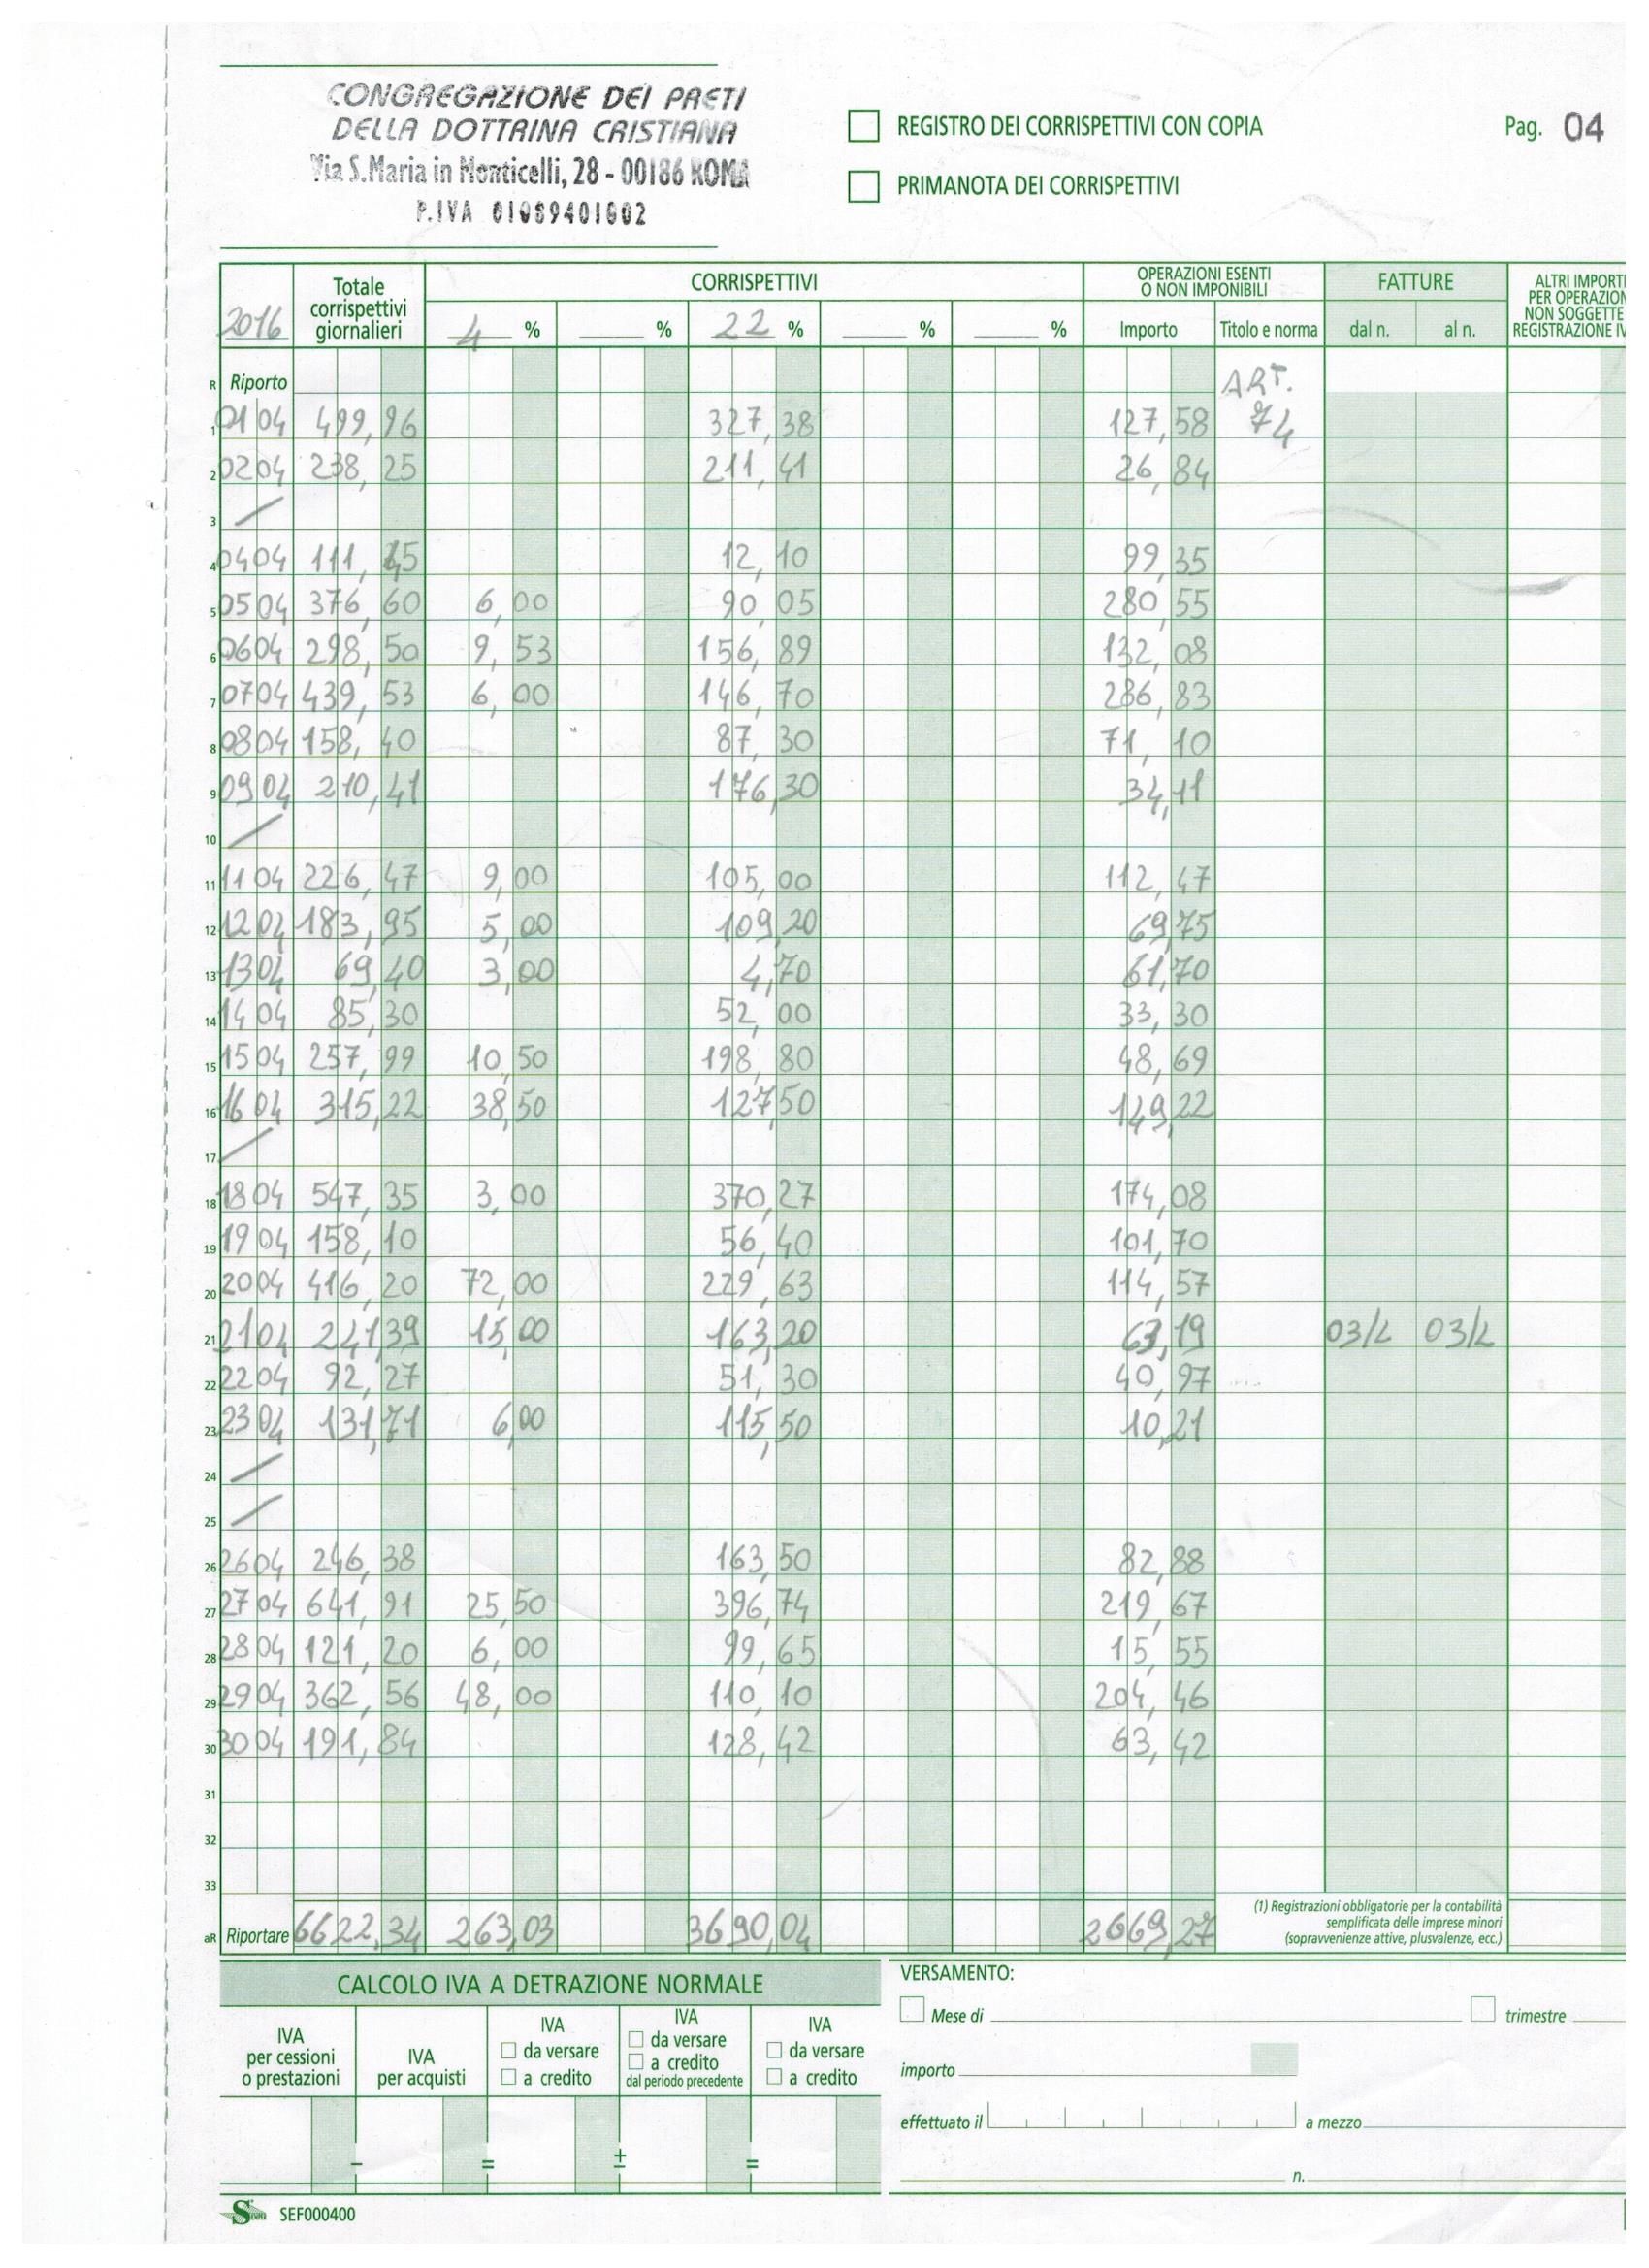 CONGREGAZIONE DEI PRETI
DELLA DOTTRINA CRISTIANA
Via S.Maria in Monticelli, 28 - 00186 ROMA
P.IVA 01089401002
REGISTRO DEI CORRISPETTIVI CON COPIA
PRIMANOTA DEI CORRISPETTIVI
Pag. 04
2016 Totale corrispettivi giornalieri CORRISPETTIVI OPERAZIONI ESENTI O NON IMPONIBILI FATTURE ALTRI IMPORTI PER OPERAZION NON SOGGETTE REGISTRAZIONE IV
4 % % 22 % % % Importo Titolo e norma dal n. al n.
R Riporto ART.
1 01 04 499,96 327,38 127,58 74
2 02 04 238,25 211,41 26,84
3
4 04 04 111,45 12,10 99,35
5 05 04 376,60 6,00 90,05 280,55
6 06 04 298,50 9,53 156,89 132,08
7 07 04 439,53 6,00 146,70 286,83
8 08 04 158,40 87,30 71,10
9 09 04 210,41 176,30 34,11
10
11 11 04 226,47 9,00 105,00 112,47
12 12 04 183,95 5,00 109,20 69,75
13 13 04 69,40 3,00 4,70 61,70
14 14 04 85,30 52,00 33,30
15 15 04 257,99 10,50 198,80 48,69
16 16 04 315,22 38,50 127,50 149,22
17
18 18 04 547,35 3,00 370,27 174,08
19 19 04 158,10 56,40 101,70
20 20 04 416,20 72,00 229,63 114,57
21 21 04 241,39 15,00 163,20 63,19 03/L 03/L
22 22 04 92,27 51,30 40,97
23 23 04 131,71 6,00 115,50 10,21
24
25
26 26 04 246,38 163,50 82,88
27 27 04 641,91 25,50 396,74 219,67
28 28 04 121,20 6,00 99,65 15,55
29 29 04 362,56 48,00 110,10 204,46
30 30 04 191,84 128,42 63,42
31
32
33
aR Riportare 6622,34 263,03 3690,04 2669,27
(1) Registrazioni obbligatorie per la contabilità
semplificata delle imprese minori
(sopravvenienze attive, plusvalenze, ecc.)
CALCOLO IVA A DETRAZIONE NORMALE
IVA per cessioni o prestazioni
IVA per acquisti
IVA da versare a credito
IVA da versare a credito dal periodo precedente
IVA da versare a credito
− = ± =
VERSAMENTO:
Mese di trimestre
importo
effettuato il a mezzo
n.
SEF000400